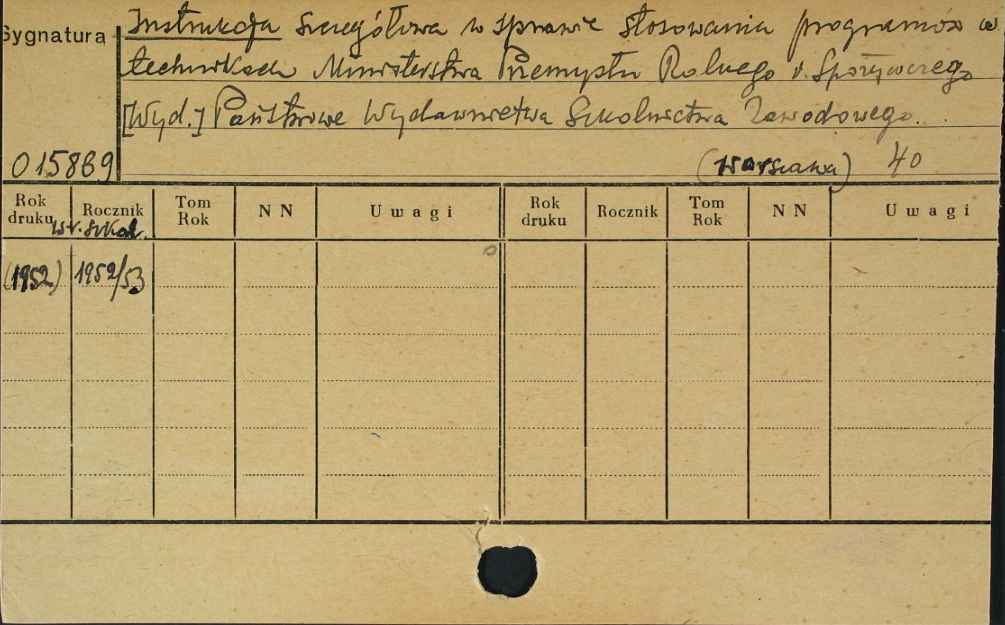 Sygnatura Instrukcja szczegółowa w sprawie stosowania programów w
technikach Ministerstwa Przemysłu Rolnego i Spożywczego
[Wyd.] Państwowe Wydawnictwa Szkolnictwa Zawodowego.
015869 (Warszawa) 40
Rok druku Rocznik Tom Rok N N Uwagi Rok druku Rocznik Tom Rok N N Uwagi
szkol.
(1952) 1952/53